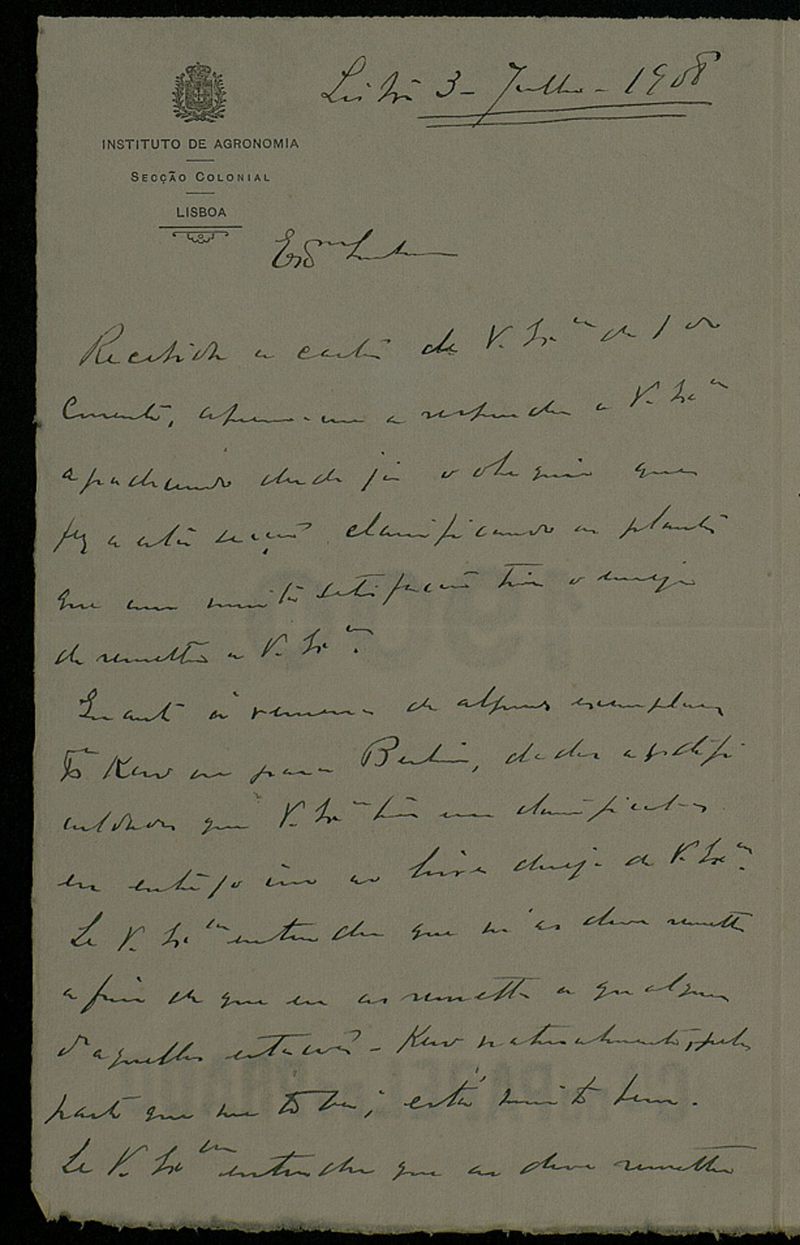 INSTITUTO DE AGRONOMIA
SECÇÃO COLONIAL
LISBOA
Lisboa 3 - Julho - 1908
Recebida a carta de V. Exª de 1 do
corrente, apresso-me a responder a V. Exª
agradecendo desde já o obsequio que
fez a esta secção classificando as plantas
que com muita satisfação tive o ensejo
de remetter a V. Exª.
Quanto á remessa de alguns exemplares
Kew ou para Berlin, dadas as diffi
culdades que V. Exª tem em classifical-os
eu estou ao inteiro desejo de V. Exª.
Se V. Exª entender que m'as deve remetter
a fim de que eu as remetta a qualquer
d'aquellas estações - Kew naturalmente, pela
parte que me toca, está muito bem.
Se V. Exª entender que as deve remetter